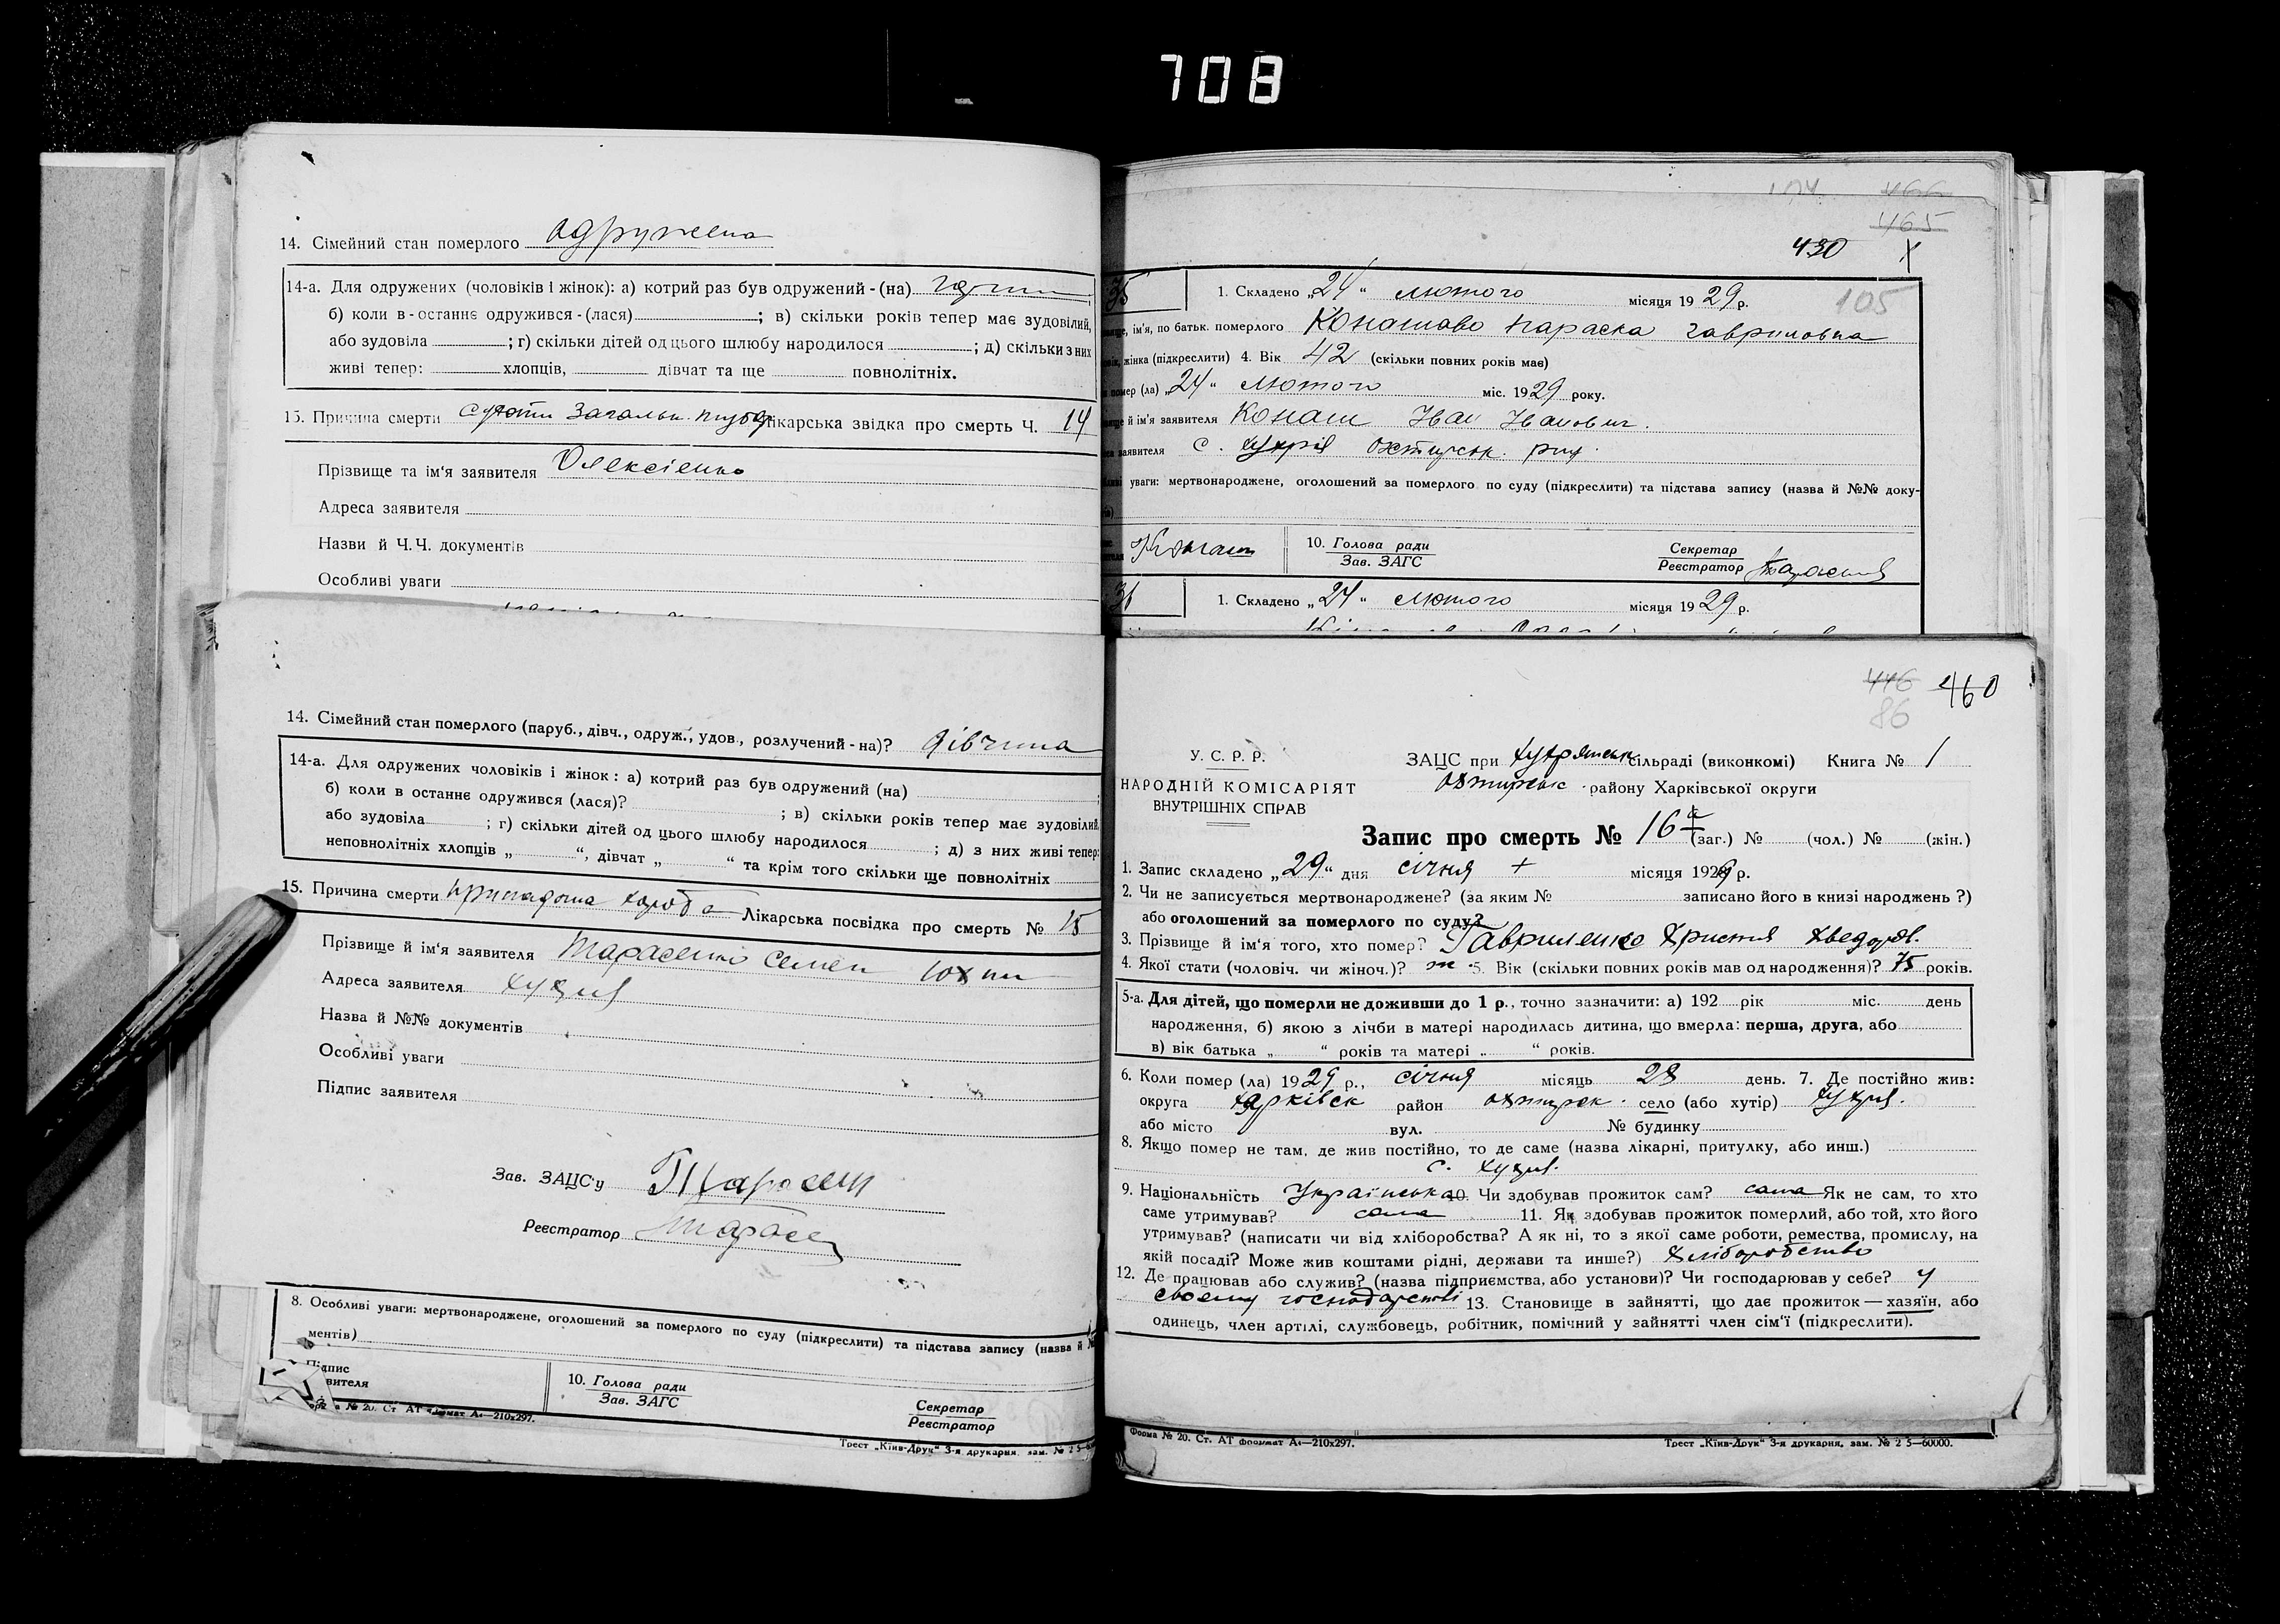 708
14. Сімейний стан померлого одружена
14-а. Для одружених (чоловіків і жінок): а) котрий раз був одружений - (на)
б) коли в - останнє одружився - (лася) ; в) скільки років тепер має зудовілий,
або зудовіла ; г) скільки дітей од цього шлюбу народилося ; д) скільки з них
живі тепер: хлопців, дівчат та ще повнолітніх.
15. Причина смерти Лікарська звідка про смерть Ч. 14
Прізвище та ім'я заявителя Олексієнко
Адреса заявителя
Назви й Ч.Ч. документів
Особливі уваги
14. Сімейний стан померлого (паруб., дівч., одруж., удов., розлучений - на)? дівчина
14-а. Для одружених чоловіків і жінок: а) котрий раз був одружений (на)
б) коли в останнє одружився (лася)? ; в) скільки років тепер має зудовілий,
або зудовіла ; г) скільки дітей од цього шлюбу народилося ; д) з них живі тепер:
неповнолітніх хлопців „ “, дівчат „ “ та крім того скільки ще повнолітніх
15. Причина смерти Лікарська посвідка про смерть № 15
Прізвище й ім'я заявителя Тарасенко Семен
Адреса заявителя Хухря
Назва й №№ документів
Особливі уваги
Підпис заявителя
Зав. ЗАЦС'у
Реєстратор
8. Особливі уваги: мертвонароджене, оголошений за померлого по суду (підкреслити) та підстава запису (назва й
ментів)
Підпис
10. Голова ради
Зав. ЗАГС
Секретар
Реєстратор
№ 20. Ст. АТ формат А4—210х297.
Трест „Київ-Друк“ 3-я друкарня, зам. № 2 5—
466
465
430
105
35
1. Складено „24“ лютого місяця 1929 р.
ім'я, по батьк. померлого Конашова Параска Гавриловна
жінка (підкреслити) 4. Вік 42 (скільки повних років має)
помер (ла) „24“ лютого міс. 1929 року.
й ім'я заявителя Конаш Іван Іванович.
заявителя с. Хухря Охтирськ. рну.
уваги: мертвонароджене, оголошений за померлого по суду (підкреслити) та підстава запису (назва й №№ доку-
10. Голова ради
Зав. ЗАГС
Секретар
Реєстратор
36
1. Складено „24“ лютого місяця 1929 р.
446 460
86
У. С. Р. Р.
НАРОДНІЙ КОМІСАРІЯТ
ВНУТРІШНІХ СПРАВ
ЗАЦС при Хухрянськ сільраді (виконкомі) Книга № 1
Охтирськ району Харківської округи
Запис про смерть № 16 (заг.) № (чол.) № (жін.)
1. Запис складено „29“ дня січня місяця 1929 р.
2. Чи не записується мертвонароджене? (за яким № записано його в книзі народжень?)
або оголошений за померлого по суду?
3. Прізвище й ім'я того, хто помер? Гавриленко Христя Хведоров.
4. Якої стати (чоловіч. чи жіноч.)? ж. 5. Вік (скільки повних років мав од народження)? 75 років.
5-а. Для дітей, що померли не доживши до 1 р., точно зазначити: а) 192 рік міс. день
народження, б) якою з лічби в матері народилась дитина, що вмерла: перша, друга, або
в) вік батька „ “ років та матері „ “ років.
6. Коли помер (ла) 1929 р., січня місяць 28 день. 7. Де постійно жив:
округа Харківськ район Охтирськ. село (або хутір) Хухря.
або місто вул. № будинку
8. Якщо помер не там, де жив постійно, то де саме (назва лікарні, притулку, або инш.)
с. Хухря.
9. Національність Українська 10. Чи здобував прожиток сам? сама Як не сам, то хто
саме утримував? сама 11. Як здобував прожиток померлий, або той, хто його
утримував? (написати чи від хліборобства? А як ні, то з якої саме роботи, ремества, промислу, на
якій посаді? Може жив коштами рідні, держави та инше?) Хліборобство
12. Де працював або служив? (назва підприємства, або установи)? Чи господарював у себе? у
своєму господарстві 13. Становище в зайнятті, що дає прожиток — хазяїн, або
одинець, член артілі, службовець, робітник, помічний у зайнятті член сім'ї (підкреслити).
Форма № 20. Ст. АТ формат А4—210х297.
Трест „Київ-Друк“ 3-я друкарня, зам. № 2 5—60000.